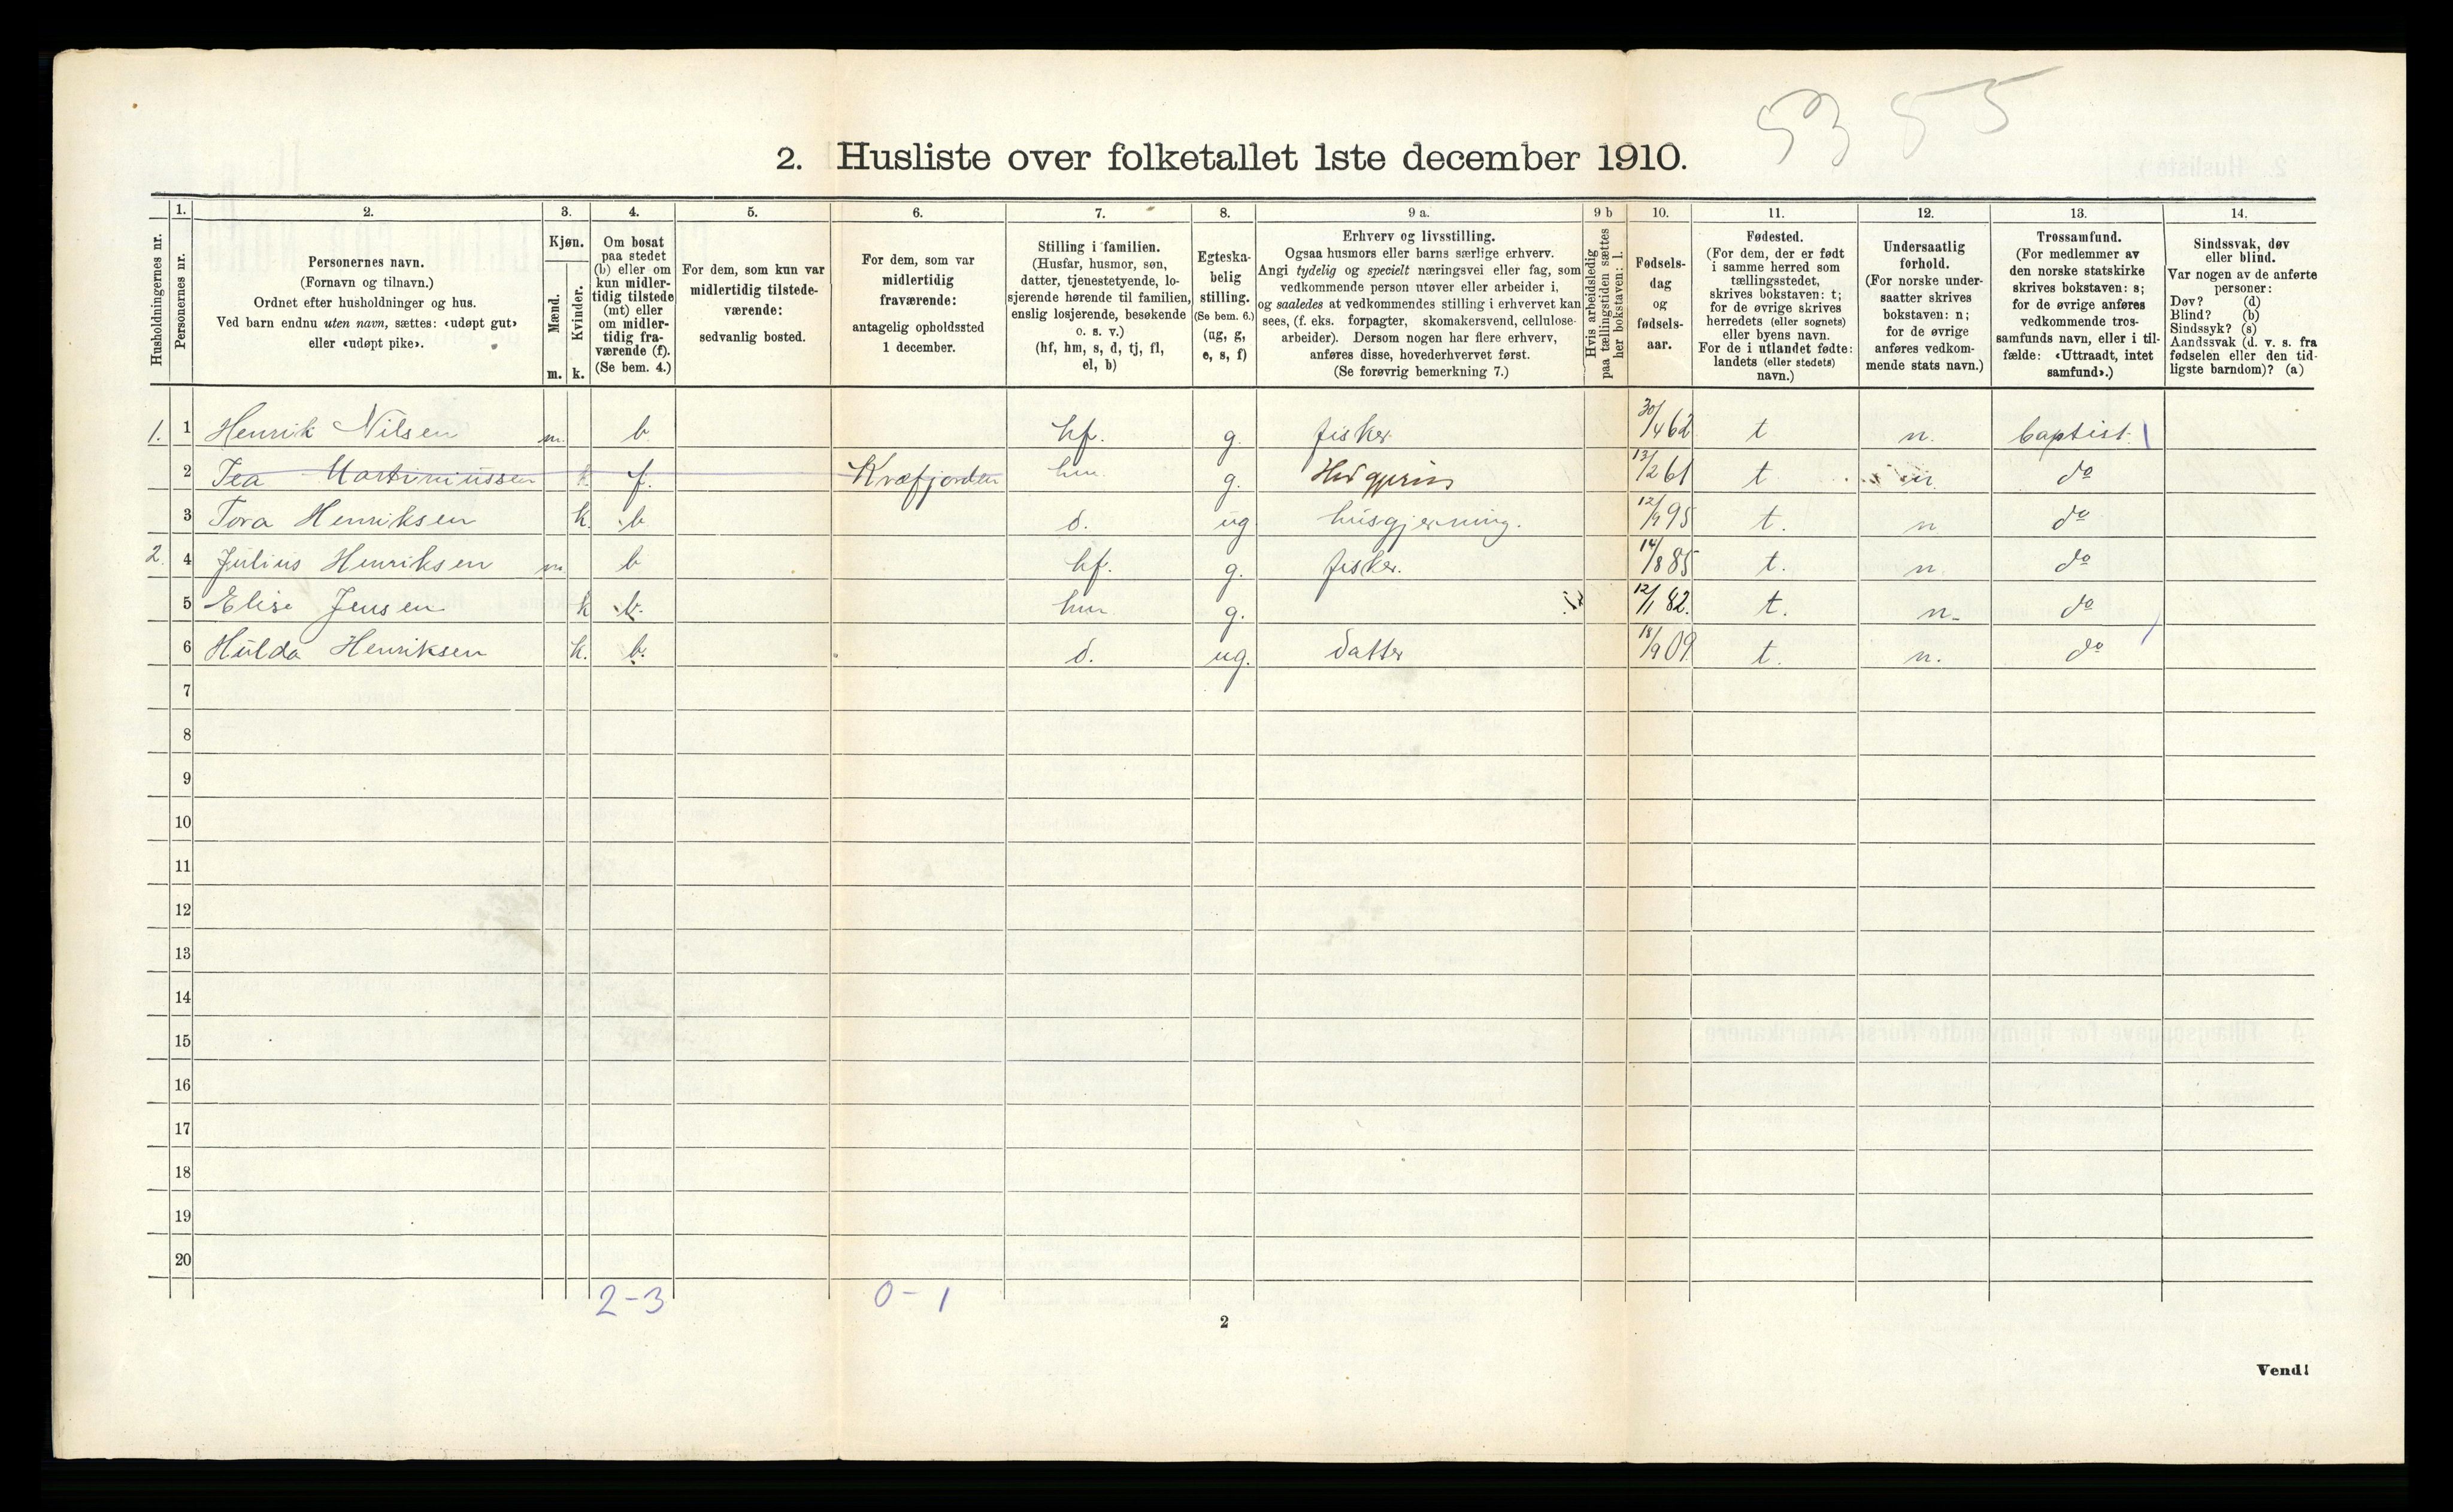 53 85
2. Husliste over folketallet 1ste december 1910.
Husholdningernes nr.
1. Personernes nr.
2. Personernes navn. (Fornavn og tilnavn.) Ordnet efter husholdninger og hus. Ved barn endnu uten navn, sættes: «udøpt gut» eller «udøpt pike».
3. Kjøn. Mænd. m. Kvinder. k.
4. Om bosat paa stedet (b) eller om kun midlertidig tilstede (mt) eller om midlertidig fraværende (f). (Se bem. 4.)
5. For dem, som kun var midlertidig tilstedeværende: sedvanlig bosted.
6. For dem, som var midlertidig fraværende: antagelig opholdssted 1 december.
7. Stilling i familien. (Husfar, husmor, søn, datter, tjenestetyende, losjerende hørende til familien, enslig losjerende, besøkende o. s. v.) (hf, hm, s, d, tj, fl, el, b)
8. Egteskabelig stilling. (Se bem. 6.) (ug, g, e, s, f)
9 a. Erhverv og livsstilling. Ogsaa husmors eller barns særlige erhverv. Angi tydelig og specielt næringsvei eller fag, som vedkommende person utøver eller arbeider i, og saaledes at vedkommendes stilling i erhvervet kan sees, (f. eks. forpagter, skomakersvend, cellulosearbeider). Dersom nogen har flere erhverv, anføres disse, hovederhvervet først. (Se forøvrig bemerkning 7.)
9 b Hvis arbeidsledig paa tællingstiden sættes her bokstaven: l.
10. Fødselsdag og fødselsaar.
11. Fødested. (For dem, der er født i samme herred som tællingsstedet, skrives bokstaven: t; for de øvrige skrives herredets (eller sognets) eller byens navn. For de i utlandet fødte: landets (eller stedets) navn.)
12. Undersaatlig forhold. (For norske undersaatter skrives bokstaven: n; for de øvrige anføres vedkommende stats navn.)
13. Trossamfund. (For medlemmer av den norske statskirke skrives bokstaven: s; for de øvrige anføres vedkommende trossamfunds navn, eller i tilfælde: «Uttraadt, intet samfund».)
14. Sindssvak, døv eller blind. Var nogen av de anførte personer: Døv? (d) Blind? (b) Sindssyk? (s) Aandssvak (d. v. s. fra fødselen eller den tidligste barndom)? (a)
1. 1 Henrik Nilsen m. b hf. g. fisker 30/4 62 t n. baptist.
2 Tea Martiniussen k. f. Kvæfjorden hm g. 13/2 61 t n do
3 Tora Henriksen k. b d. ug husgjerning. 12/9 95 t. n do
2. 4 Julius Henriksen m b hf. g. fisker. 14/8 85 t. n. do
5 Elise Jensen k b. hm g. 12/1 82. t. n. do
6 Hulda Henriksen k. b. d. ug. datter 18/9 09. t. n. do
7
8
9
10
11
12
13
14
15
16
17
18
19
20
2-3 0-1
2
Vend!